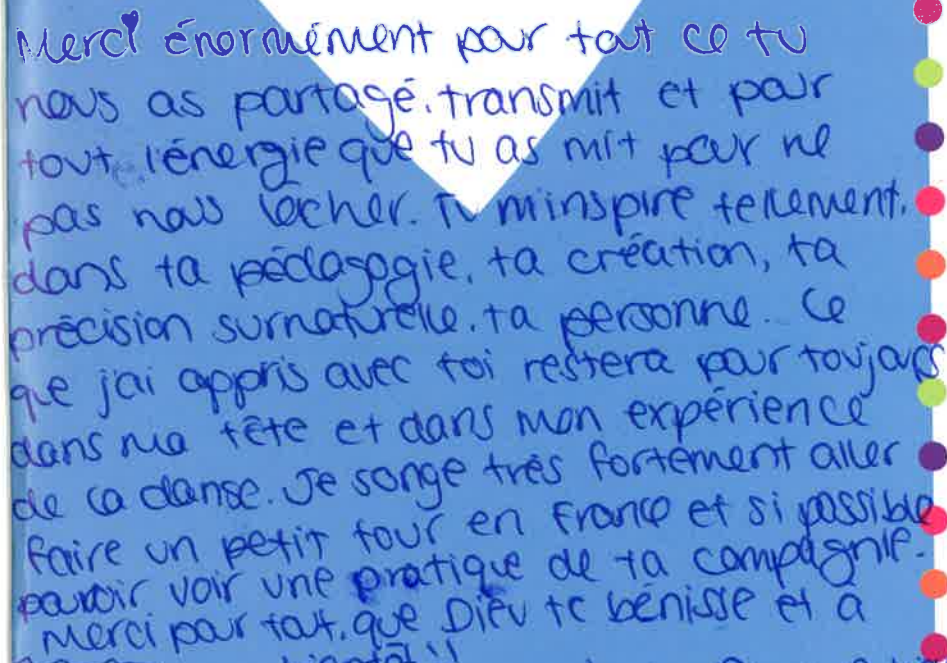 Merci énormément pour tout ce tu
nous as partagé. transmit et pour
tout l'énergie que tu as mit pour ne
pas nous lâcher. Tu m'inspire tellement.
dans ta pédagogie, ta création, ta
précision surnaturelle. ta personne. Ce
que j'ai appris avec toi restera pour toujours
dans ma tête et dans mon expérience
de la danse. Je songe très fortement aller
faire un petit tour en France et si possible
pouvoir voir une pratique de ta compagnie.
Merci pour tout. que Dieu te bénisse et à
bientôt!!